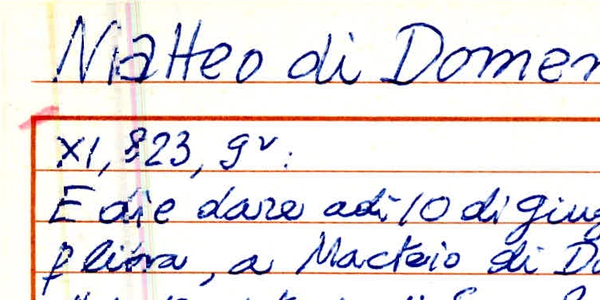 Matteo di Domen
XI, 823, 9v:
E die dare adi 10 di giug
pliora, a Macteio di Do